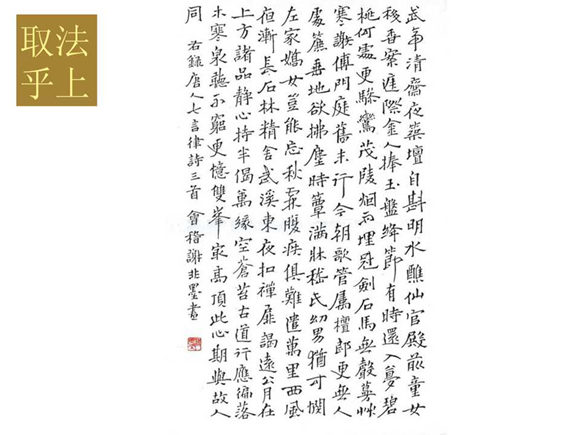 取法
乎上
武帝清齋夜築壇自斟明水醮仙官殿前童女
移香案雲際金人捧玉盤絳節有時還入夢碧
桃何處更驂鸞茂陵烟雨埋冠劍石馬無聲蔓草
寒謝傅門庭舊末行今朝歌管屬檀郎更無人
處簾垂地欲拂塵時簟滿牀嵇氏幼男猶可憫
左家嬌女豈能忘秋霖腹疾俱難遣萬里西風
夜漸長石林精舍武溪東夜扣禪扉謁遠公月在
上方諸品靜心持半偈萬緣空蒼苔古道行應徧落
木寒泉聽不窮更憶雙峯最高頂此心期與故人
同 右錄唐人七言律詩三首 會稽謝非墨書